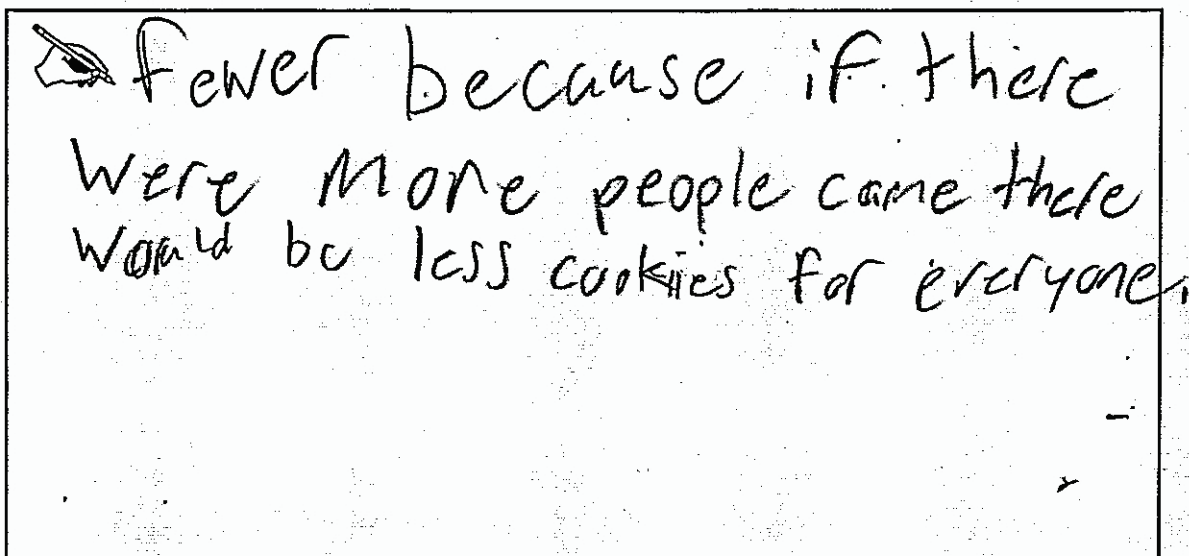 fewer because if there
were more people came there
would be less cookies for everyone.